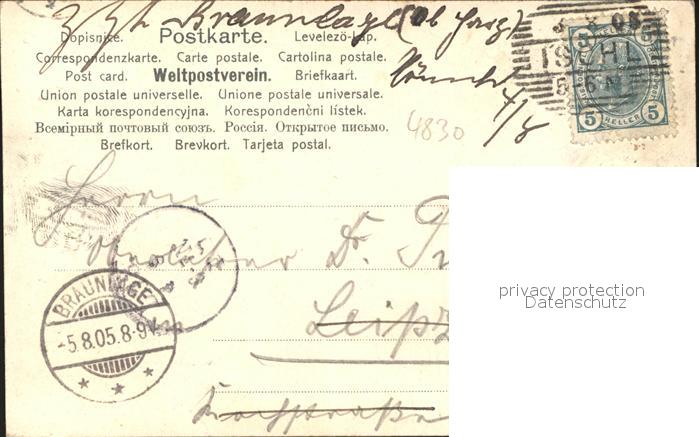 z. Zt. Braunlage (Ob Harz)
Dopisnice. Postkarte. Levelező-Lap.
Correspondenzkarte. Carte postale. Cartolina postale.
Post card. Weltpostverein. Briefkaart.
Union postale universelle. Unione postale universale.
Karta korespondencyjna. Korespondenčni listek.
Всемірный почтовый союзъ. Россія. Открытое письмо.
Brefkort. Brevkort. Tarjeta postal.
ISCHL
5
5 5
HELLER
4/8
4830
Herrn
Dr.
BRAUNLAGE
-5.8.05.8-9V.
Leipz
privacy protection
Datenschutz